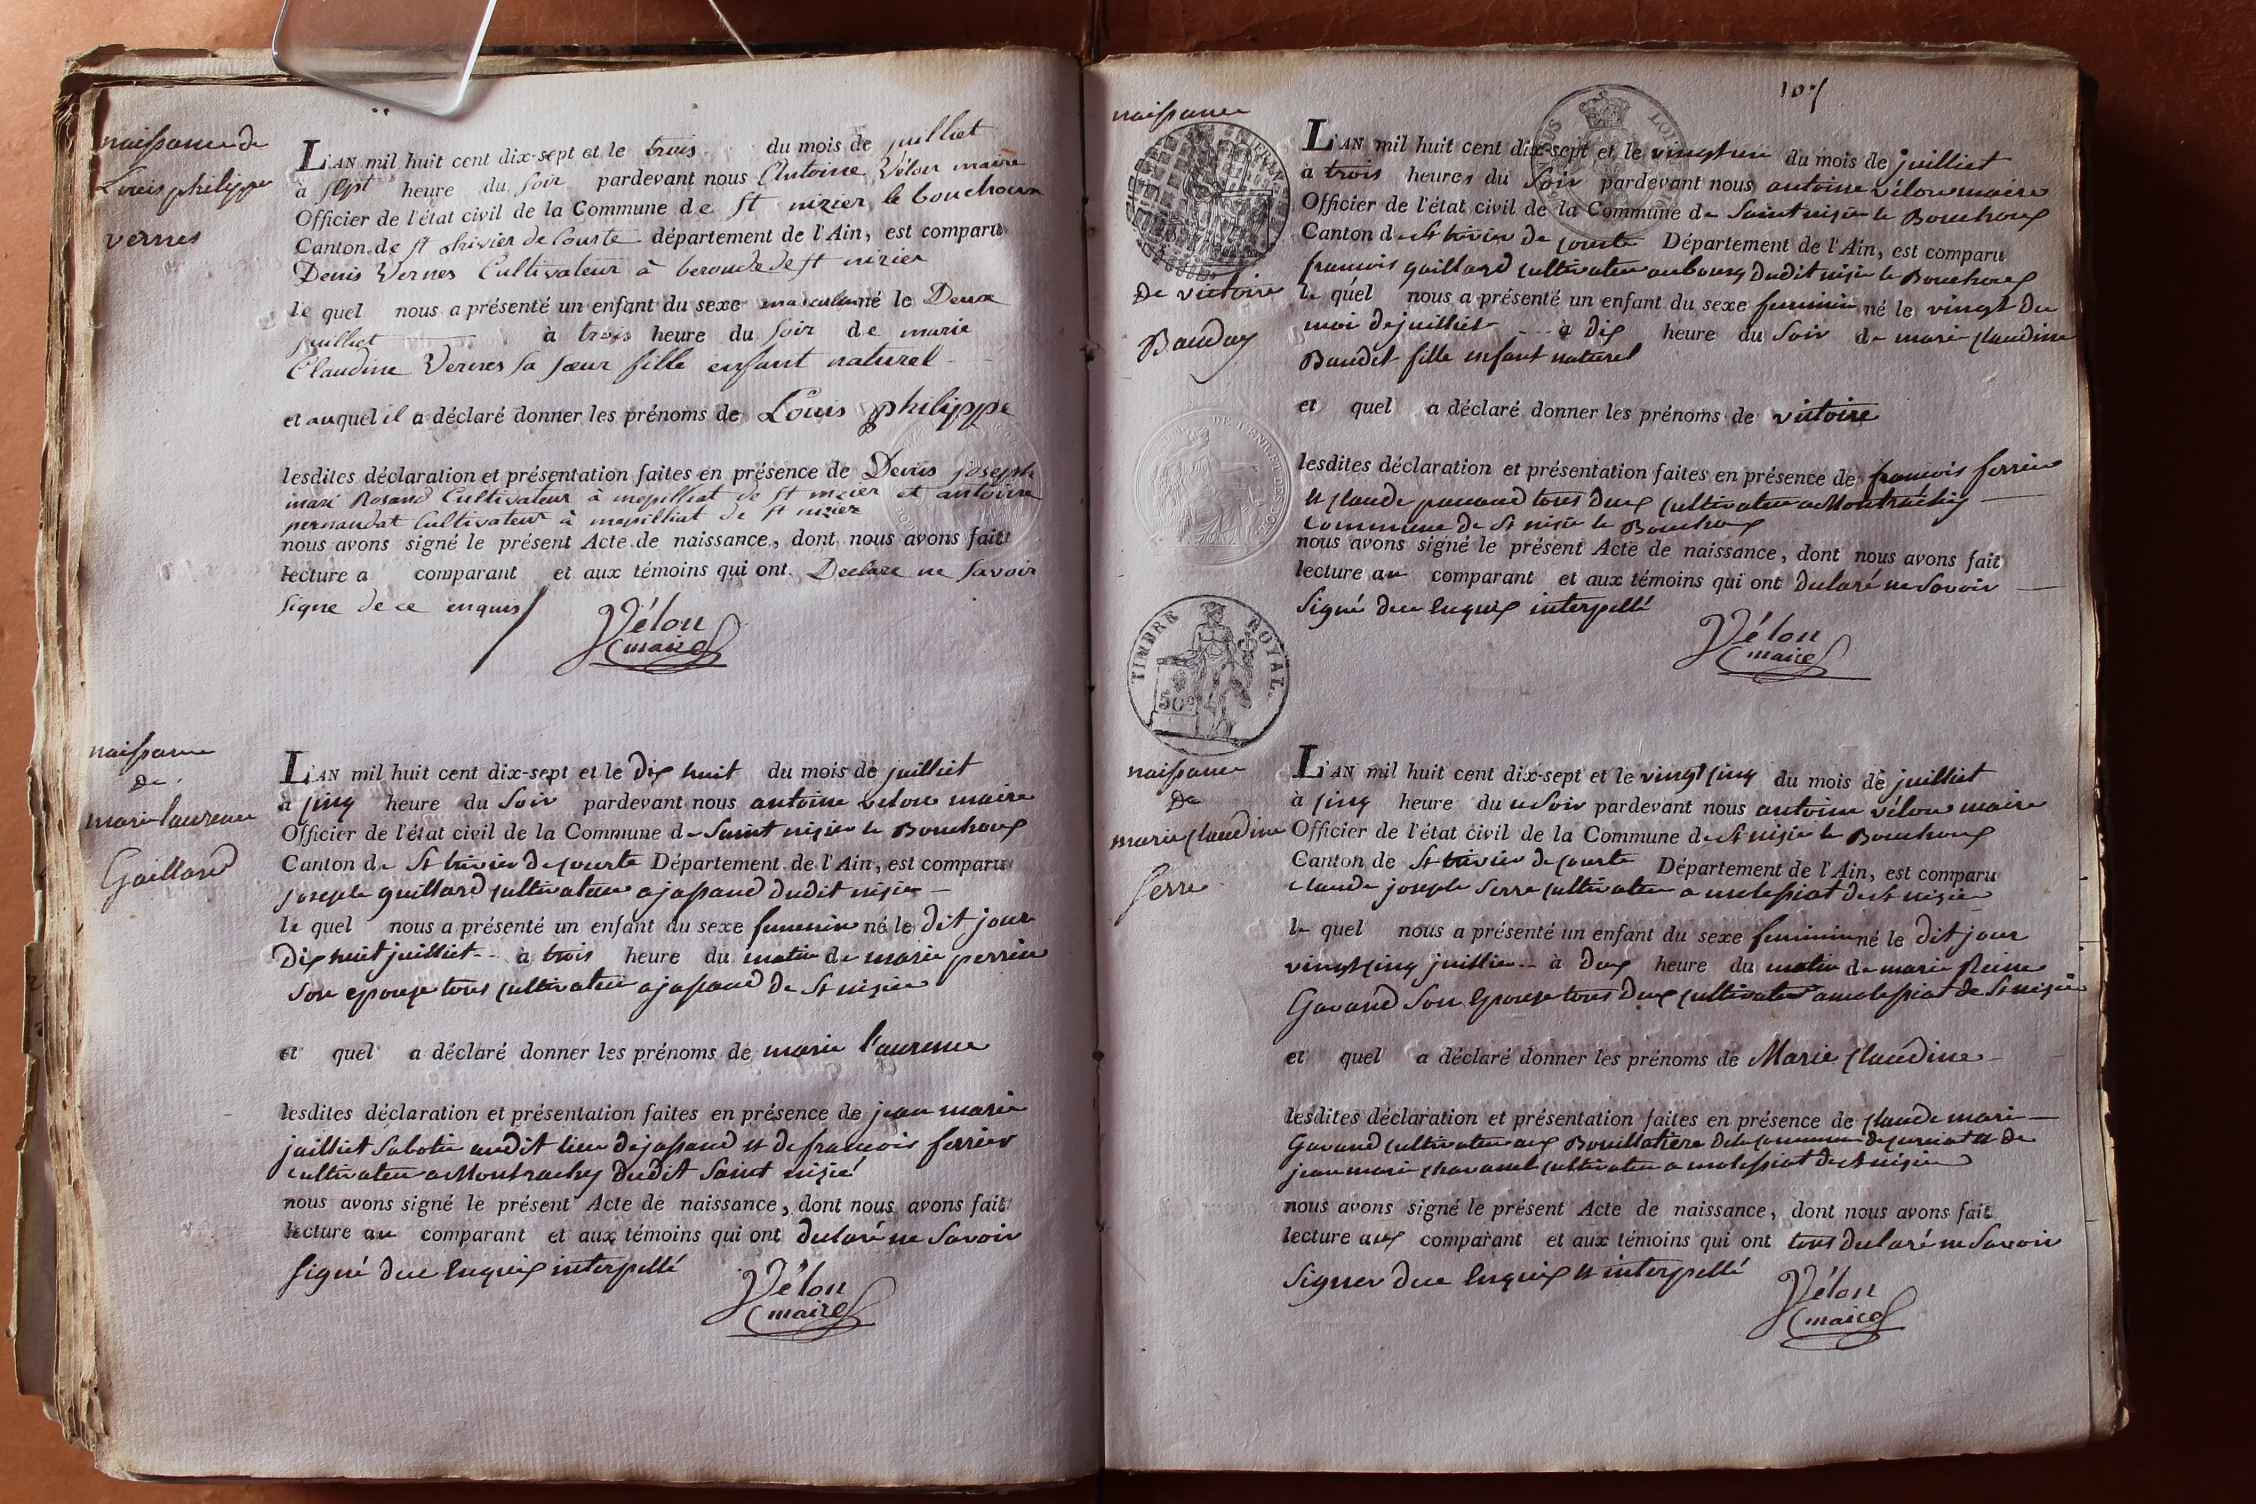 naissance de
Louis philippe
vernes
L'AN mil huit cent dix-sept et le trois du mois de juilliet
à sept heure du soir pardevant nous Antoine Vélon maire
Officier de l'état civil de la Commune de St nizier le bouchoux
Canton de St trivier de Courte département de l'Ain, est comparu
Denis Vernes Cultivateur à de St nizier
le quel nous a présenté un enfant du sexe masculin né le Deux
juilliet à trois heure du soir de marie
Claudine Vernes sa sœur fille enfant naturel
et auquel il a déclaré donner les prénoms de Louis philippe
lesdites déclaration et présentation faites en présence de Denis joseph
marie Cultivateur à mepilliat de St nizier et antoine
Cultivateur à mepilliat de St nizier
nous avons signé le présent Acte de naissance, dont nous avons fait
lecture a comparant et aux témoins qui ont Declare ne savoir
signe de ce enquis
Vélon
maire
naissance
de
marie laurence
Gaillard
L'AN mil huit cent dix-sept et le dix huit du mois de juilliet
à cinq heure du soir pardevant nous antoine vélon maire
Officier de l'état civil de la Commune de Saint nizier le Bouchoux
Canton de St trivier de courte Département de l'Ain, est comparu
joseph guillard cultivateur a jassaud dudit nizier
le quel nous a présenté un enfant du sexe feminin né le dit jour
Dix huit juilliet à trois heure du matin de marie perrin
son epouse tous cultivateur a jassaud de St nizier
et quel a déclaré donner les prénoms de marie l'aurence
lesdites déclaration et présentation faites en présence de jean marie
jailliet Sabotie audit lieu de jassaud et de francois ferrier
cultivateu a Montrachy dudit Saint nizié
nous avons signé le présent Acte de naissance, dont nous avons fait
lecture au comparant et aux témoins qui ont déclaré ne Savoir
signé de ce Enquix interpellé
Vélon
maire
107
naissance
de victoire
Banday
L'AN mil huit cent dix-sept et le vingt un du mois de juilliet
à trois heures du Soir pardevant nous antoine vélon maire
Officier de l'état civil de la Commune de Saint nizie le Bouchoux
Canton de St trivier de courte Département de l'Ain, est comparu
francois gaillard cultivateu au bourg dudit nizie le Bouchoux
le quel nous a présenté un enfant du sexe feminin né le vingt du
moi de juilliet à dix heure du Soir de marie claudine
Baudet fille enfant naturel
et quel a déclaré donner les prénoms de victoire
lesdites déclaration et présentation faites en présence de francois ferrier
et claude tous deux cultivateu a Montrachy
commune de St nizie le Bouchoux
nous avons signé le présent Acte de naissance, dont nous avons fait
lecture au comparant et aux témoins qui ont déclaré ne Savoir
signé de ce Enquix interpellé
Vélon
maire
TIMBRE ROYAL.
50c
naissance
de
marie claudine
Serre
L'AN mil huit cent dix-sept et le vingt cinq du mois de juilliet
à cinq heure du Soir pardevant nous antoine vélon maire
Officier de l'état civil de la Commune de St nizie le Bouchoux
Canton de St trivier de courte Département de l'Ain, est comparu
claude joseph Serre cultivateu a molessiat de St nizier
le quel nous a présenté un enfant du sexe feminin né le dit jour
vingt cinq juillie à dex heure du matin de marie Reine
Gavand Son Epouse tous deux cultivateu a molessiat de St nizie
et quel a déclaré donner les prénoms de Marie Claudine
lesdites déclaration et présentation faites en présence de claude marie
Gavand cultivateu aux Bouillatiere de la commune de curciat et de
jean marie chavanel cultivateu a molessiat de St nizie
nous avons signé le présent Acte de naissance, dont nous avons fait
lecture aux comparant et aux témoins qui ont tous déclaré ne Savoir
Signer de ce Enquix et interpellé
Vélon
maire